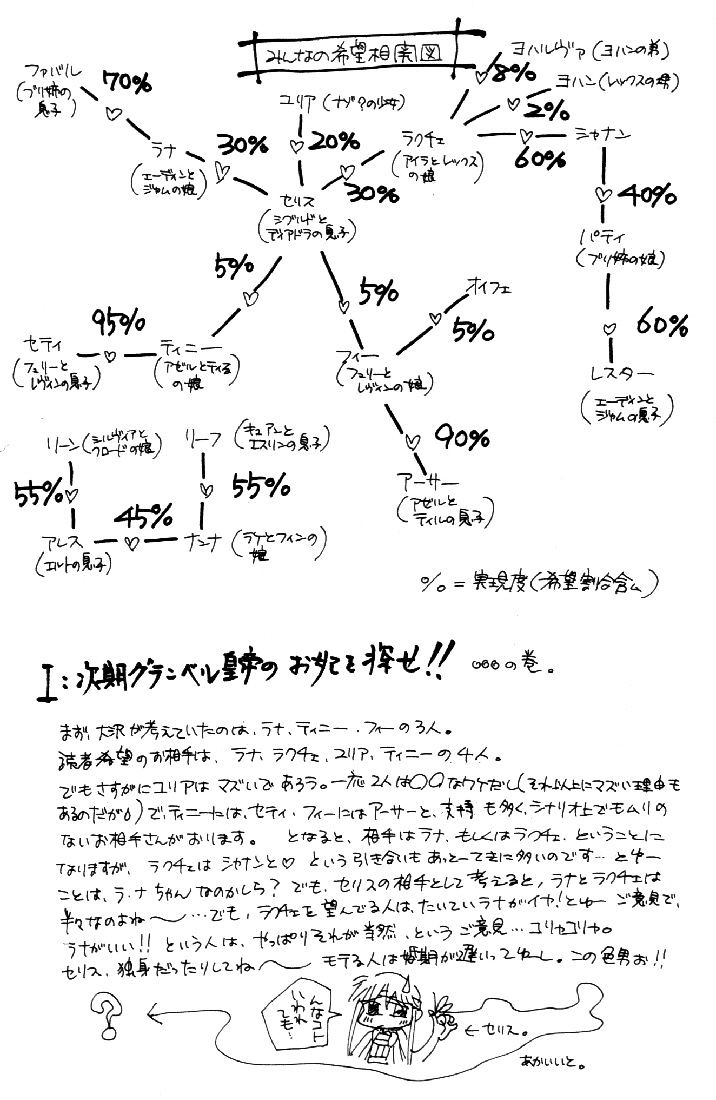 みんなの希望相関図
ヨハルヴァ(ヨハンの弟)
8%
ヨハン(レックスの甥)
2%
ファバル
(ブリ姉の
息子)
70%
ユリア(ナゾ?の少女)
20%
ラクチェ
(アイラとレックス
の娘)
60%
シャナン
ラナ
(エーディンと
ジャムの娘)
30%
30%
40%
セリス
(シグルドと
ディアドラの息子)
パティ
(ブリ姉の娘)
5%
5%
オイフェ
5%
60%
95%
セティ
(フュリーと
レヴィンの息子)
ティニー
(アゼルとティルテュ
の娘)
フィー
(フュリーと
レヴィンの娘)
レスター
(エーディンと
ジャムの息子)
リーン
(シルヴィアと
クロードの娘)
リーフ
(キュアンと
エスリンの息子)
90%
55%
55%
45%
アーサー
(アゼルと
ティルの息子)
アレス
(エルトの息子)
ナンナ
(ラケとフィンの
娘)
%=実現度(希望割合含ム)
I:次期グランベル皇帝の お妃を探せ!! 。。。の巻。
まず、大沢が考えていたのは、ラナ、ティニー・フィーの3人。
読者希望のお相手は、ラナ、ラクチェ、ユリア、ティニーの4人。
でもさすがにユリアはマズいであろう。一応2人は〇〇なワケだし(それ以上にマズい理由も
あるのだが)で、ティニーには、セティ・フィーにはアーサーと、支持も多く、シナリオ上でもムリの
ないお相手さんがおります。 となると、相手はラナ、もしくはラクチェ、ということに
なりますが、ラクチェはシャナンと♡という引き合いもあっとーてきに多いのです…とゆー
ことは、ラ・ナちゃんなのかしら?でも、セリスの相手として考えると、ラナとラクチェは
半々なのよね〜…でも、ラクチェを望んでる人は、たいていラナがイヤ!とゆーご意見で、
ラナがいい!!という人は、やっぱりそれが当然、というご意見…コリャコリャ。
セリス、独身だったりしてね〜 モテる人は婚期が遅いってゆーし。この色男お!!
?
んなコト
いわれ
ても…
←セリス。
あかいいと。